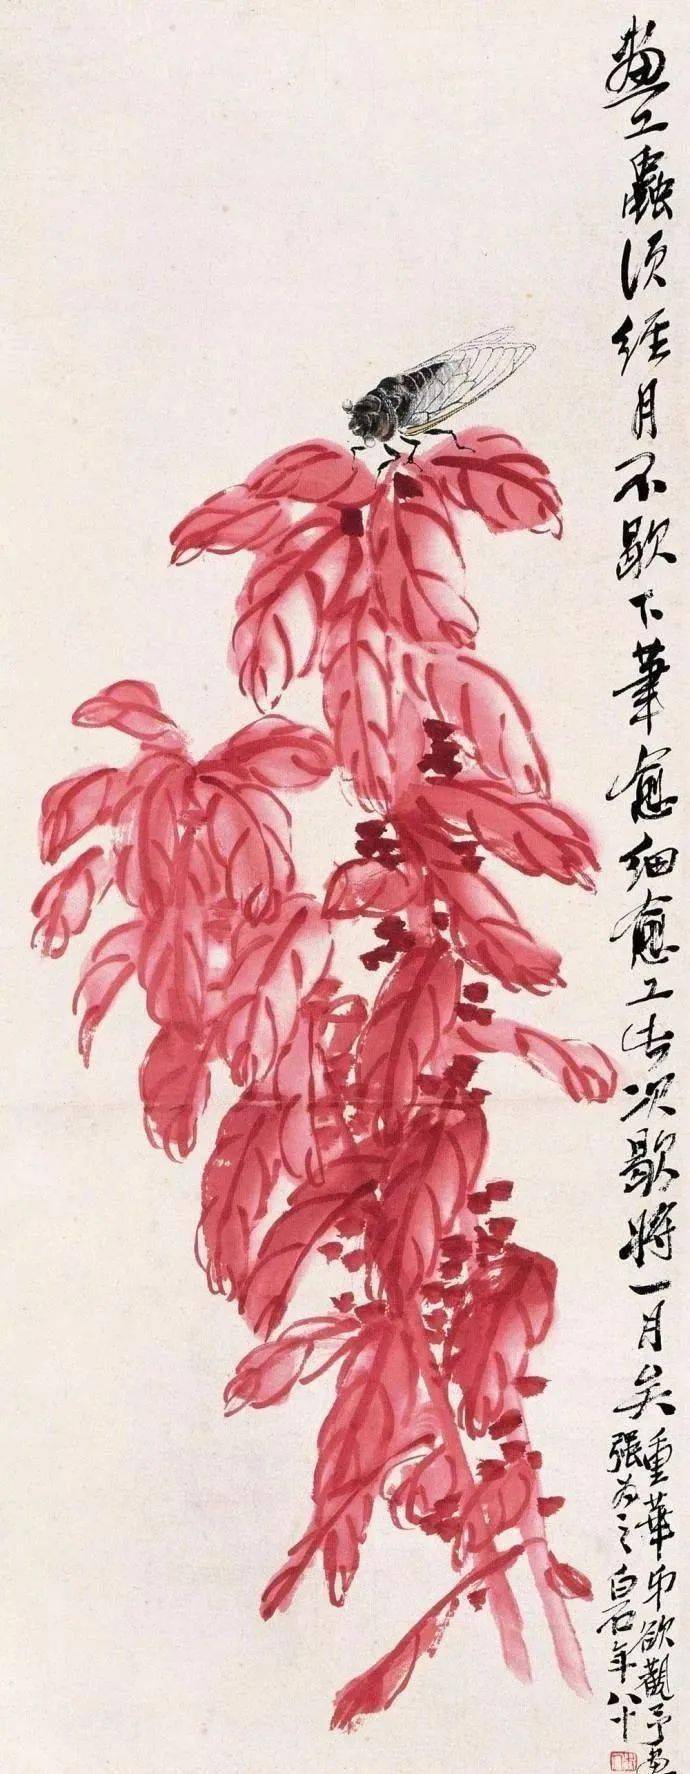 畫工蟲須經月不歇下筆愈細愈工此次歇將一月矣
重華弟欲觀予畫
強為之白石年八十